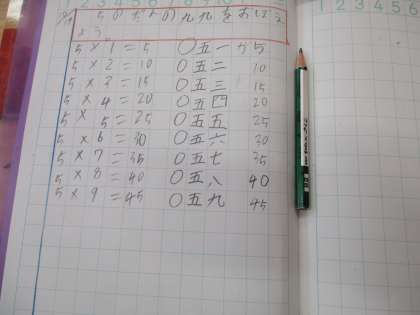 1 2 3 4 5 6 7 8 9 10
5のだんの九九をおぼえ
よう。
5 × 1 = 5 ○五一が5
5 × 2 = 10 ○五二 10
5 × 3 = 15 ○五三 15
5 × 4 = 20 ○五四 20
5 × 5 = 25 ○五五 25
5 × 6 = 30 ○五六 30
5 × 7 = 35 ○五七 35
5 × 8 = 40 ○五八 40
5 × 9 = 45 ○五九 45
1 2 3 4 5 6